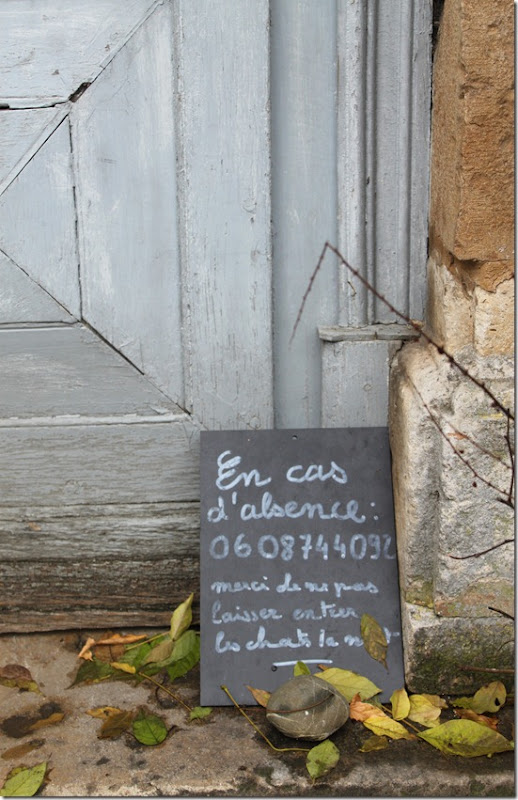 En cas
d'absence :
0608744092
merci de ne pas
laisser entrer
les chats la nuit